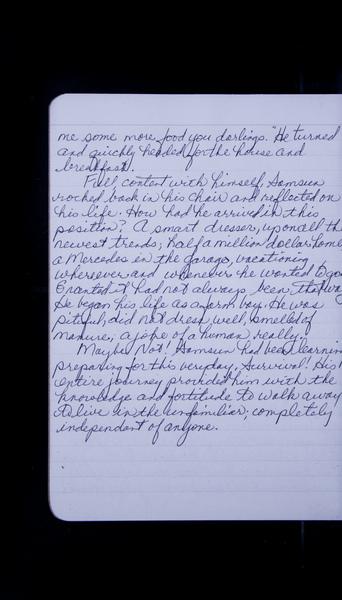 me some more food you darlings." He turned
and quickly headed for the house and
breakfast.
Full content with himself, Samsun
rocked back in his chair and reflected on
his life. How had he arrived in this
position? A smart dresser, up on all th
newest trends; half a million dollar home
a Mercedes in the garage, vacationing
wherever and whenever he wanted to go
Granted it had not always been that way
He began his life as a farm boy. He was
pitiful, did not dress well, smelled of
manure, a joke of a human really.
Maybe Not! Samsun had been learnin
preparing for this very day. Survival! His
entire journey provided him with the
knowledge and fortitude to walk away
to live in the unfamiliar; completely
independent of anyone.